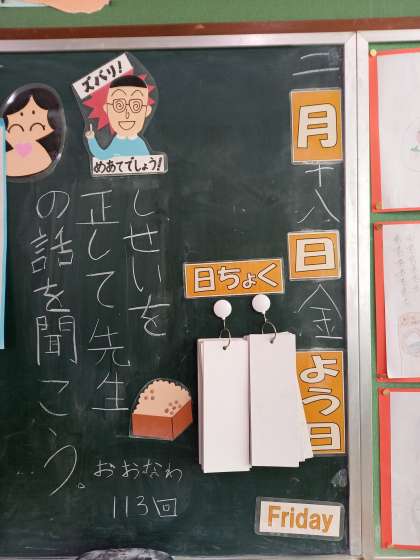 二月十八日金よう日
日ちょく
ズバリ!
めあてでしょう!
しせいを
正して先生
の話を聞こう。
おおなわ
113回
Friday